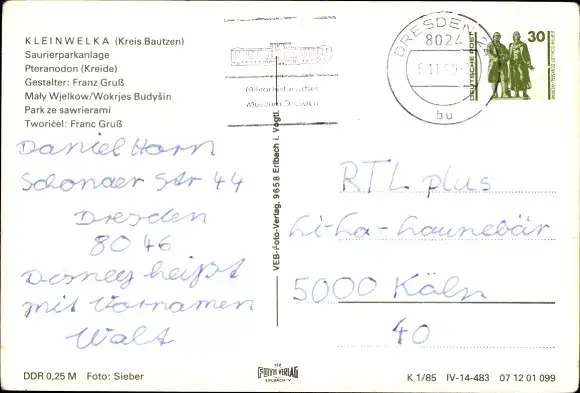 KLEINWELKA (Kreis Bautzen)
Saurierparkanlage
Pteranodon (Kreide)
Gestalter: Franz Gruß
Mały Wjelkow/Wokrjes Budyšin
Park ze sawrierami
Tworićel: Franc Gruß
Daniel Horn
Schonaer Str 44
Dresden
8046
Disney heißt
mit Vornamen
Walt
DDR 0,25 M Foto: Sieber
VEB-Foto-Verlag, 9658 Erlbach i. Vogtl.
VEB
FOTO VERLAG
ERLBACH/V
Museum Dresden
DRESDEN
8024
bu
DEUTSCHE POST
30
RTL plus
hi-ha-haunebär
5000 Köln
40
K 1/85 IV-14-483 07 12 01 099